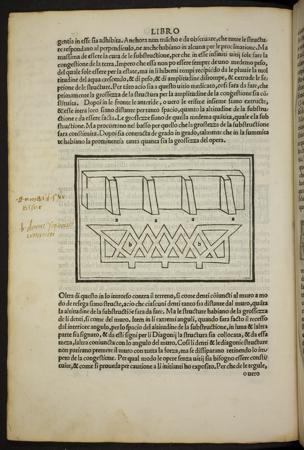 LIBRO
gentia in esse sia adhibita. Anchora non mancho e da obseruare, che tutte le structu
re respondano al perpendiculo, ne anche habbiano in alcuna parte le proclinatione. Ma
maxima de essere la cura de le substructione, per che in esse infiniti uitij sole fare la
congestione de la terra. Impero che essa non po essere sempre de uno medemo peso,
del quale sole essere per la estate, ma in li hiberni tempi recipiendo da le pluuie la mul
titudine del aqua crescendo, & di peso, & di magnitudine disrompe, & extrude le se
ptione de le structure. Per tanto acio sia a questo uitio medicato, cosi sara da fare, che
primamente la grossecia de la structura per la amplitudine de la congestione sia cō
stituita. Dopoi in le fronte le anteride, o uero le erisme insieme siano extructe,
& esse intra loro siano distante tanto spatio, quanto la altitudine de la substru
ctione e da essere facta. Le grossecie siano de quella medema qualita, quale e la sub
structione. Ma procurreno nel basso per quello che la grossecia de la substructione
sara constituita. Dopoi sia contracta de grado in grado, talmente che in la summita
se habiano la prominentia tanta quanta sia la grossecia del opera.
a a a
b b
Oltra di questo in lo introrso contra il terreno, si come denti cōiuncti al muro a mo
do de resega siano structe, acio che ciascuni denti tanto sia distante dal muro, quāta
la altitudine de la substructiōe sera da fare. Ma le structure habiano de la grossecia
de li denti, si come del muro. Item in li extremi anguli, quando sara facto il recesso
dal interiore angulo, per lo spacio del altitudine de la substructione, in luna & laltra
parte sia signato, & da essi signi per li Diagonij la structura sia collocata, & da essa
meza, laltra coniuncta con lo angulo del muro. Cosi li denti & le diagonie structure
non patirano premere il muro con tutta la forza, ma se dissiparano retinendo lo im
peto de la congestione. Per qual modo le opere senza uitij sia bisogno essere constitu
tuite, & come si proueda per cautione a li initianti ho exposito. Per che de le regule,
o uero